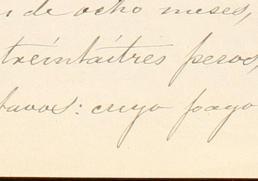 de ocho meses,
treintaitres pesos,
tavos: cuyo pago